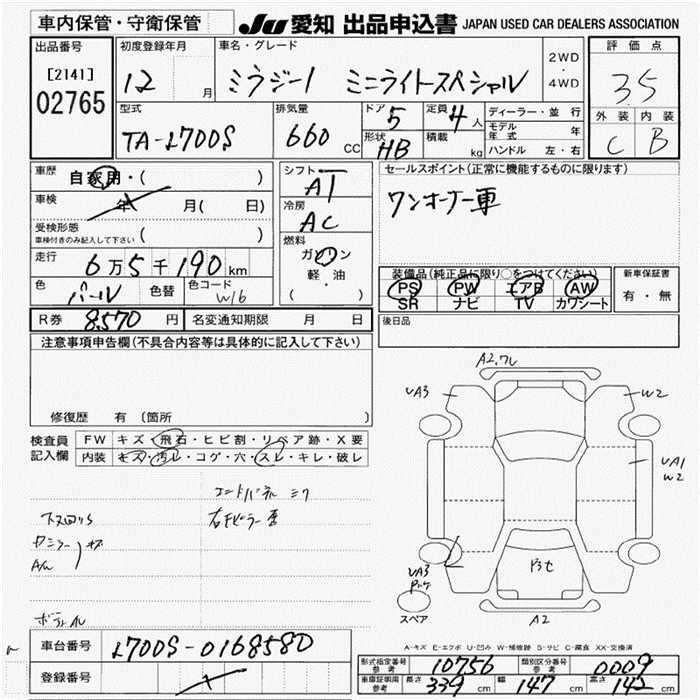 車内保管・守衛保管 JU 愛知 出品申込書 JAPAN USED CAR DEALERS ASSOCIATION
出品番号 初度登録年月 車名・グレード 評価点
[2141] 12 月 ミラジーノ ミニライトスペシャル 2WD・4WD 3.5
02765 外装 内装
型式 排気量 ドア 5 定員 4人 ディーラー・並行 C B
TA-L700S 660 CC 形状 HB 積載 kg モデル年式 年
ハンドル 左・右
車歴 自家用・( ) シフト AT セールスポイント(正常に機能するものに限ります)
車検 年 月( 日) 冷房 AC ワンオーナー車
受検形態 車検付きのみ記入して下さい ( ) 燃料 ガソリン
走行 6万5千190km 軽・油 装備品(純正品に限り○をつけてください) 新車保証書
色 パール 色替 色コード W16 ( ) PS PW エアB AW 有・無
SR ナビ TV カワシート
R券 8,570 円 名変通知期限 月 日 後日品
注意事項申告欄(不具合内容等は具体的に記入して下さい)
A2,ワレ
UA3 W2
修復歴 有 (箇所
検査員記入欄 FW キズ・飛石・ヒビ割・リペア跡・X要
内装 キズ・汚レ・コゲ・穴・スレ・キレ・破レ
UA1
W2
UA3
スペア A2
A-キズ E-エクボ U-凹み W-補修跡 S-サビ C-腐食 XX-交換済
車台番号 L700S-0168580
登録番号
形式指定番号 参考 10756 類別区分番号 参考 0009
車庫証明用 参考 長さ 339 cm 幅 147 cm 高さ 142 cm